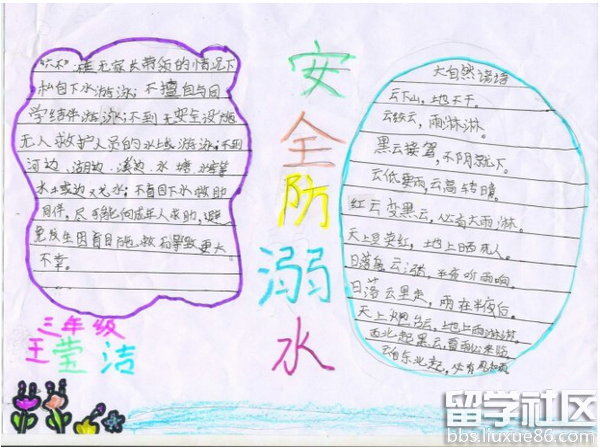 "六不":在无家长带领的情况下
私自下水游泳;不擅自与同
学结伴游泳;不到无安全设施
无人救护人员的水域游泳;不到
河边、湖边、溪边、水塘、
水土或边玩水;不盲目下水救助
同伴,尽可能向成年人求助,避
免发生因盲目施救而导致更大
不幸。
三年级
王莹洁
安全防溺水
大自然谚语
云下山,地不干。
云绞云,雨淋淋。
黑云接驾,不阴就下。
云低要雨云高转晴。
红云变黑云,必有大雨淋。
天上豆荚红,地上晒死人。
日落 云涨,半夜听雨响。
日落云里走,雨在半夜后。
天上 云,地上雨淋淋。
西北起黑云,雷雨必来临。
云自东北起,必有风和雨
留学社区
bbs.liuxue86.com